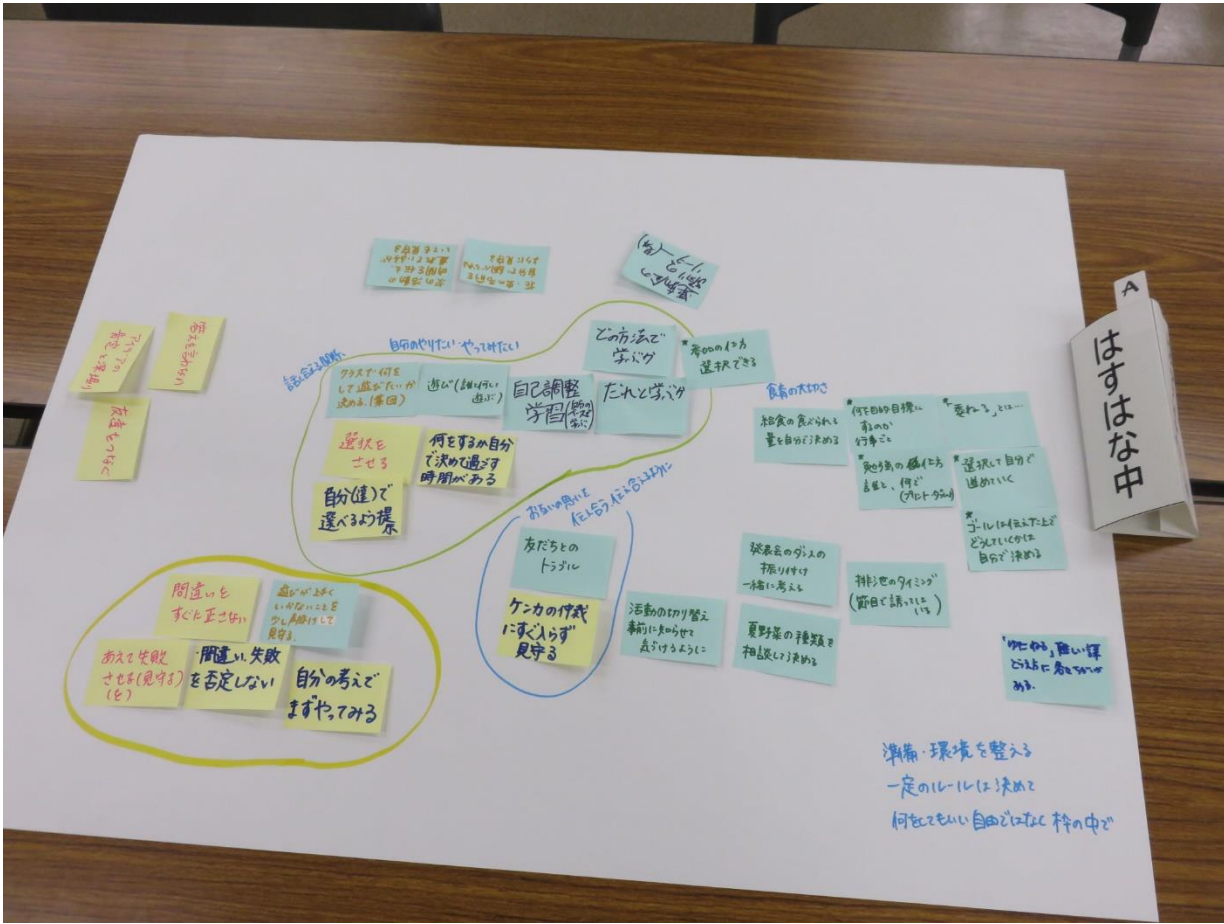 A
はすはな中
答えを言わない
友達をつなぐ
自分のやりたい・やってみたい
どの方法で
学ぶか
*参加の仕方
選択できる
クラスで何を
して遊びたいか
決める。(集団)
遊び(誰と何して
遊ぶ)
自己調整
学習
だれと学ぶか
選択を
させる
何をするか自分
で決めて過ごす
時間がある
自分(達)で
選べるよう
食育の大切さ
給食の食べられる
量を自分で決める
*何を目的・目標に
するのか
行事ごと
*「委ねる」とは…
*勉強会の
誰と、何で
*選択して自分で
進めていく
*ゴールは伝えた上で
どうしていくかは
自分で決める
お互いの思いを
伝え合う・伝え合えるように
友だちとの
トラブル
ケンカの仲裁
にすぐ入らず
見守る
発表会のダンスの
振り付け
一緒に考える
排泄のタイミング
(節目で誘っては
いる)
活動の切り替え
事前に知らせて
気づけるように
夏野菜の種類を
相談して決める
間違いを
すぐに正さない
遊びが上手く
いかないことを
少し声掛けして
見守る。
あえて失敗
させる(見守る)
(を)
・間違い、失敗
を否定しない
自分の考えで
まずやってみる
「ゆだねる」難しい
ある。
準備・環境を整える
一定のルールは決めて
何をしてもいい自由ではなく枠の中で